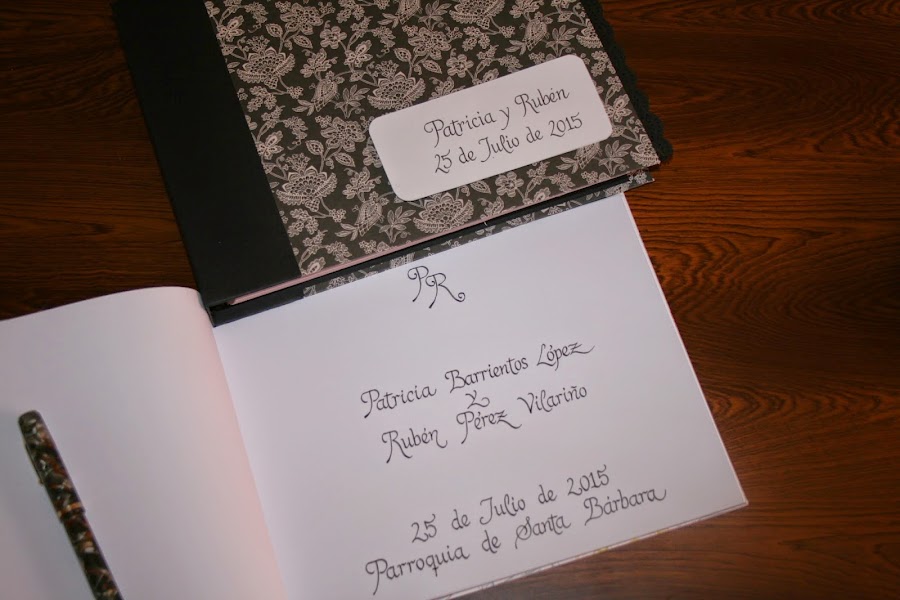 Patricia y Rubén
25 de Julio de 2015
PR
Patricia Barrientos López
y
Rubén Pérez Vilariño
25 de Julio de 2015
Parroquia de Santa Bárbara